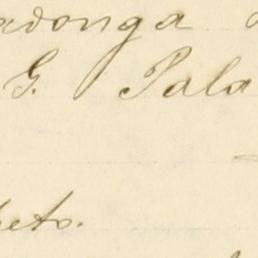 adonga
G. Pala
ets.